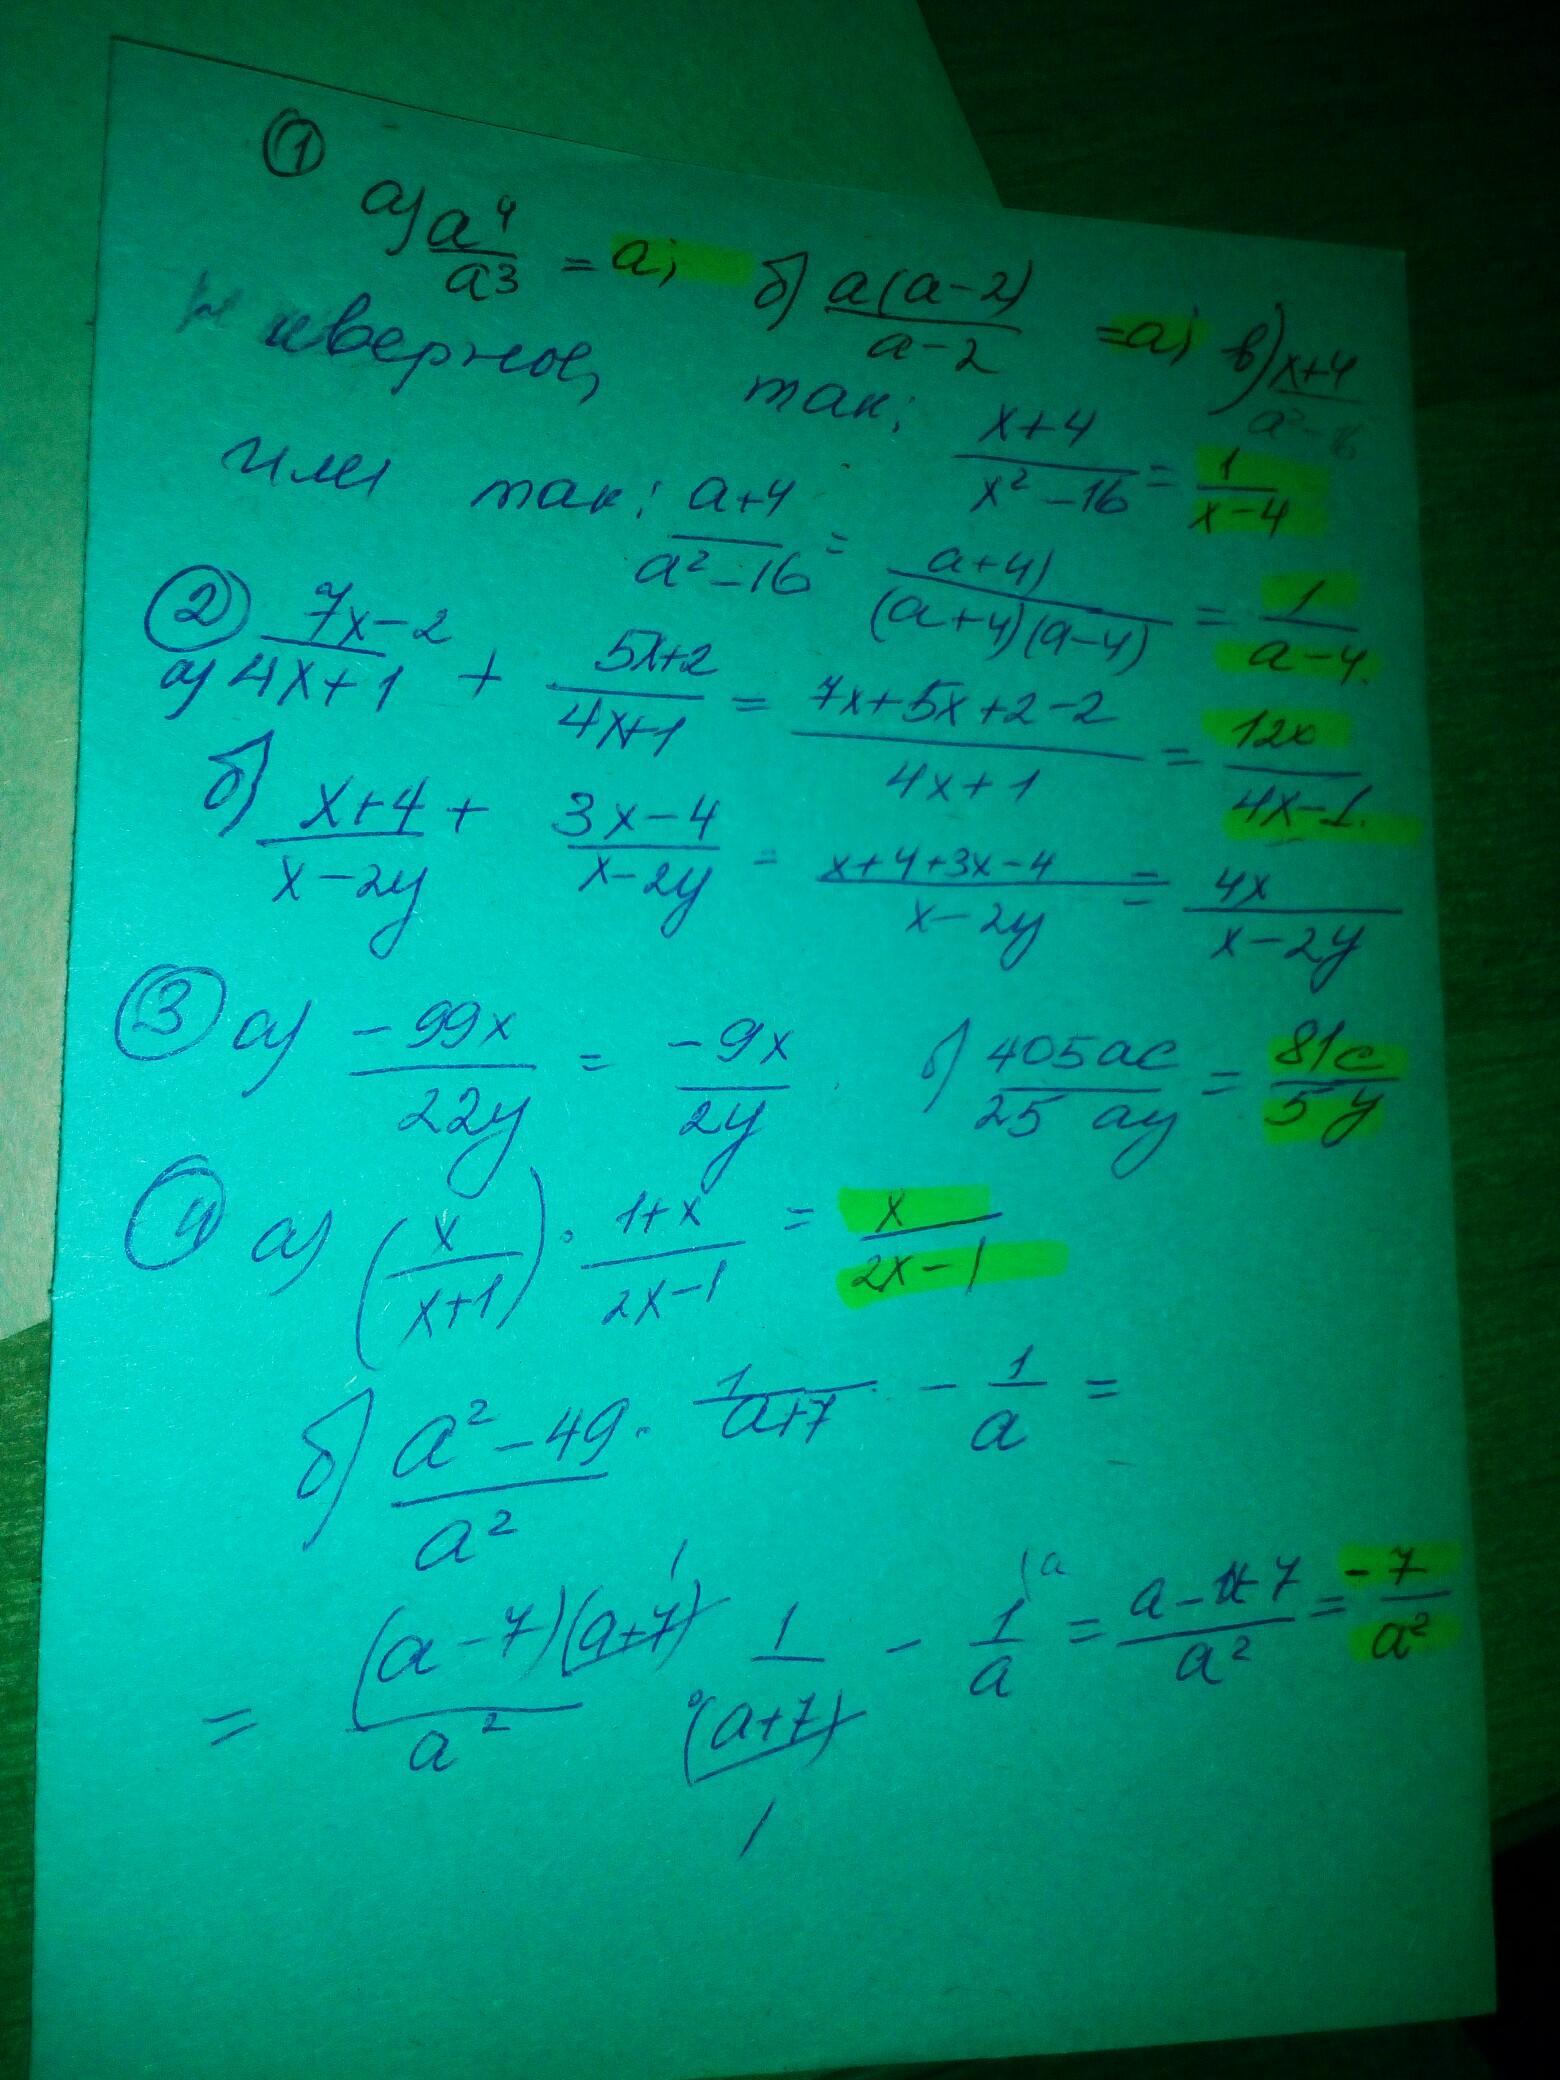 ①
а) a⁴/a³ = a; б) a(a-2)/(a-2) = a; в) (x+4)/(a²-16)
наверное, так: (x+4)/(x²-16) = 1/(x-4)
или так: (a+4)/(a²-16) = (a+4)/((a+4)(a-4)) = 1/(a-4).
② а) (7x-2)/(4x+1) + (5x+2)/(4x+1) = (7x+5x+2-2)/(4x+1) = 12x/(4x-1).
б) (x+4)/(x-2y) + (3x-4)/(x-2y) = (x+4+3x-4)/(x-2y) = 4x/(x-2y)
③ а) -99x/22y = -9x/2y. б) 405ac/25ay = 81c/5y
④ а) (x/(x+1)) · (1+x)/(2x-1) = x/(2x-1)
б) (a²-49)/a² · 1/(a+7) - 1/a =
= (a-7)(a+7)/a² · 1/(a+7) - 1/a = (a-a-7)/a² = -7/a²